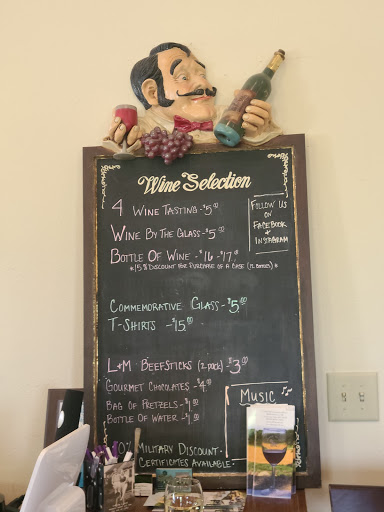 Wine Selection
4 WINE TASTING - $5.00
WINE BY THE GLASS - $5.00
BOTTLE OF WINE - $16 - $17.00
*15% DISCOUNT FOR PURCHASE OF A CASE (12 BOTTLES)*
FOLLOW US
ON
FACEBOOK
+
INSTAGRAM
COMMEMORATIVE GLASS - $5.00
T-SHIRTS - $15.00
L+M BEEFSTICKS (2 PACK) $3.00
GOURMET CHOCOLATES - $4.00
BAG OF PRETZELS - $1.00
BOTTLE OF WATER - $1.00
MUSIC
MILITARY DISCOUNT
CERTIFICATES AVAILABLE